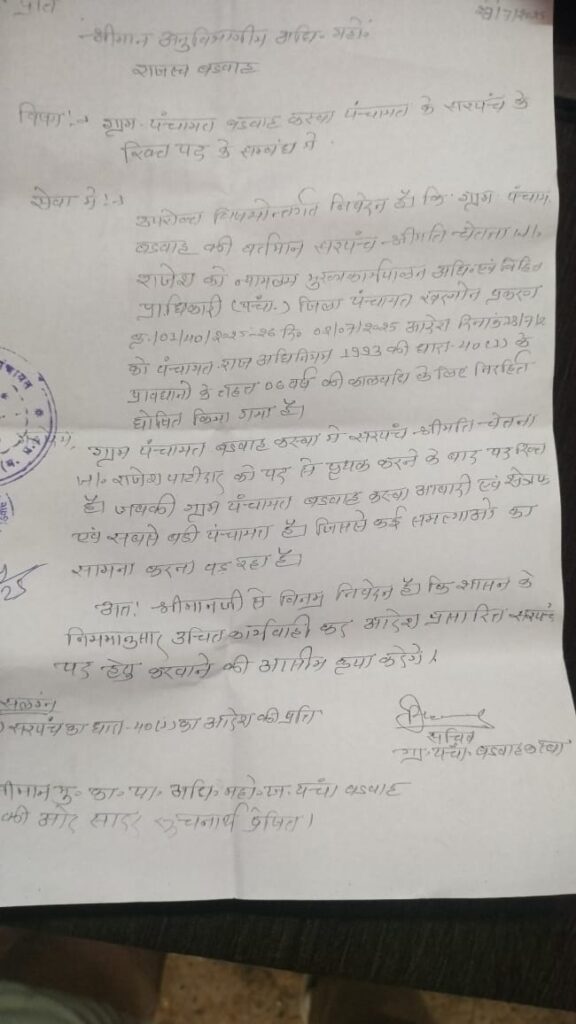 प्रति
श्रीमान अनुविभागीय अधि. महो.
राजस्व बडवाह
विषय:- ग्राम पंचायत बडवाह कस्बा पंचायत के सरपंच के
रिक्त पद के सम्बंध मे.
सेवा मे:-
उपरोक्त विषयान्तर्गत निवेदन है। कि ग्राम पंचायत
बडवाह की वर्तमान सरपंच श्रीमति चेतना
राजेश को न्यायालय मुख्य कार्यपालन अधि. एवं विहित
प्राधिकारी (पंचा.) जिला पंचायत खरगोन प्रकरण
क्र./02/40/2025-26 दि० 02/07/2025 आदेश दिनांक
को पंचायत राज अधिनियम 1993 की धारा-40(1) के
प्रावधानो के तहत 06 वर्ष की कालवधि के लिए निरर्हित
घोषित किया गया है।
ग्राम पंचायत बडवाह कस्बा मे सरपंच श्रीमति चेतना
राजेश पाटीदार को पद से पृथक करने के बाद पद रिक्त
है। जबकी ग्राम पंचायत बडवाह कस्बा आबादी एवं क्षेत्रफल
एवं सबसे बडी पंचायत है। जिससे कई समस्याओ का
सामना करना पड़ रहा है।
अत: श्रीमानजी से विनम्र निवेदन है। कि शासन के
नियमानुसार उचित कार्यवाही कर आदेश प्रसारित सरपंच
पद हेतु करवाने की आसीम कृपा करेगे।
सलंग्न
सरपंच का धारा-40(1) का आदेश की प्रति
सचिव
ग्रा. पंचा. बडवाह कस्बा
श्रीमान मु० का० पा० अधि० महो० ज. पंचा बडवाह
की ओर सादर सूचनार्थ प्रेषित।